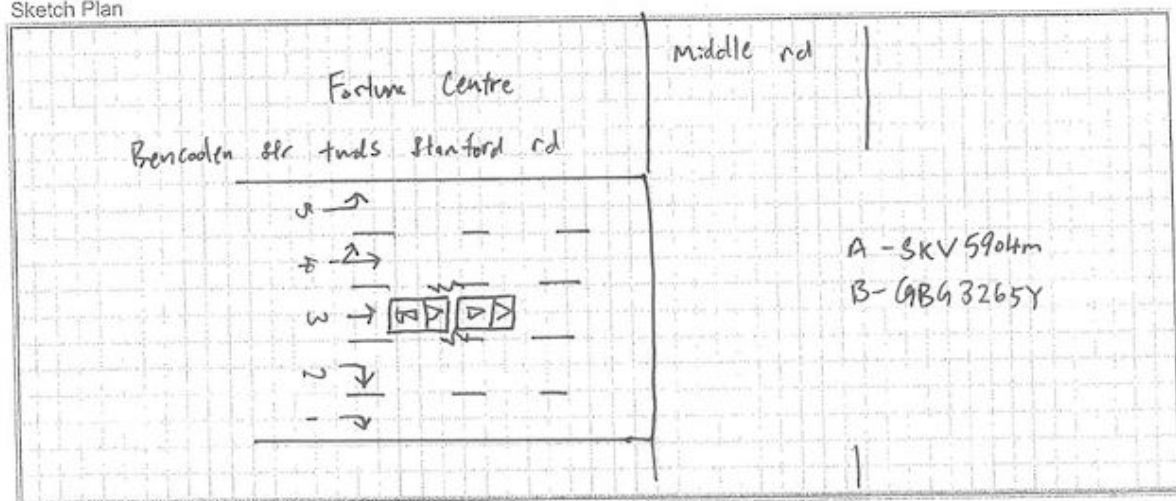 Sketch Plan
Middle rd
Fortune Centre
Bencoolen str twds Stanford rd
5
4
3 B A
2
1
A - SKV5904m
B - GBG3265Y